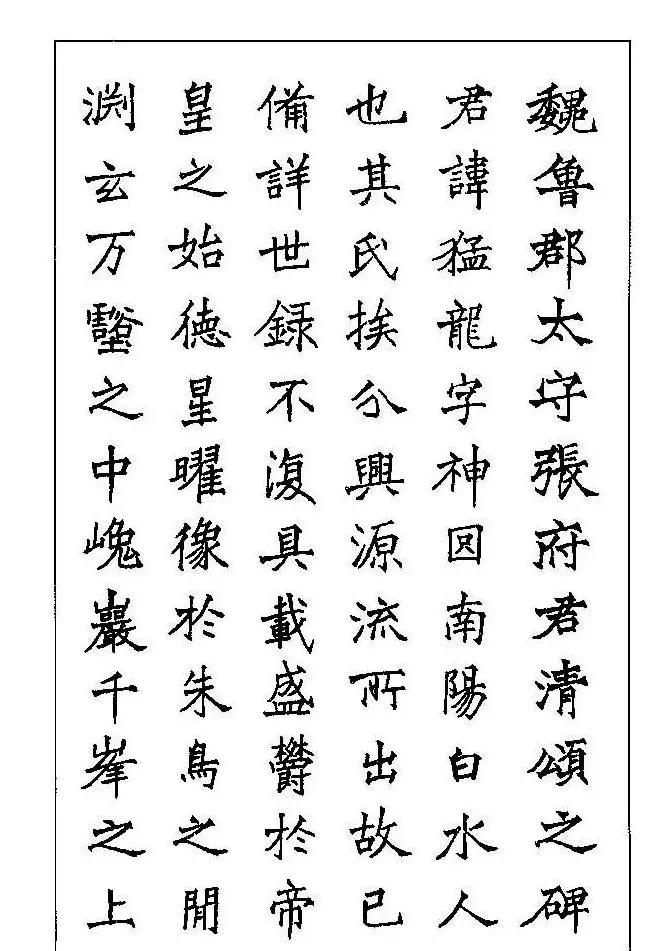 魏魯郡太守張府君清頌之碑
君諱猛龍字神囙南陽白水人
也其氏挨分興源流所出故已
備詳世録不復具載盛欝於帝
皇之始徳星曜像於朱鳥之閒
渕玄万壑之中嵬巖千峯之上